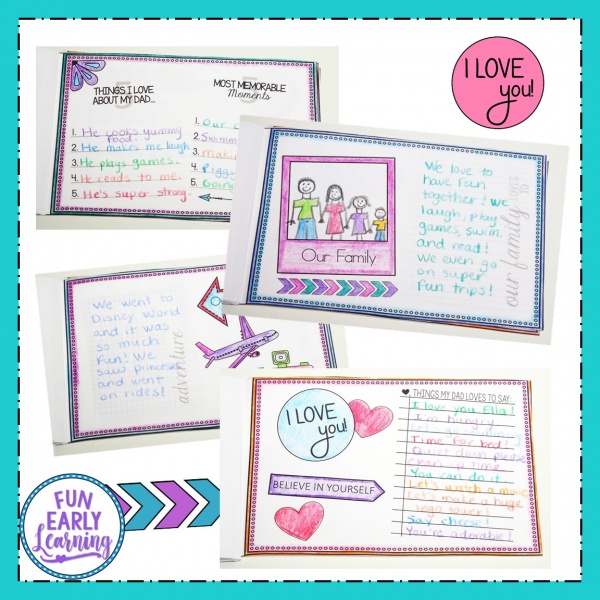 5
THINGS I LOVE
ABOUT MY DAD...
1. He cooks yummy
food.
2. He makes me laugh
3. He plays games.
4. He reads to me.
5. He's super strong.
5
MOST MEMORABLE
Moments
1. Our
2. Swimm
3. Makin
4. Piggy
5. Going
I LOVE
you!
Our Family
We love to
have fun
together! We
laugh, play
games, swim,
and read!
We even go
on super
fun trips!
our family
We went to
Disney World
and it was
so much
fun! We
saw princesses
and went
on rides!
adventure
I LOVE
you!
BELIEVE IN YOURSELF
THINGS MY DAD LOVES TO SAY:
I love you Ella!
I'm hungry
Time for bed!
Quiet down please
Clean up time
You can do it
Let's watch a movie
Let's make a huge
lego tower!
Say cheese!
You're adorable!
FUN
EARLY
Learning